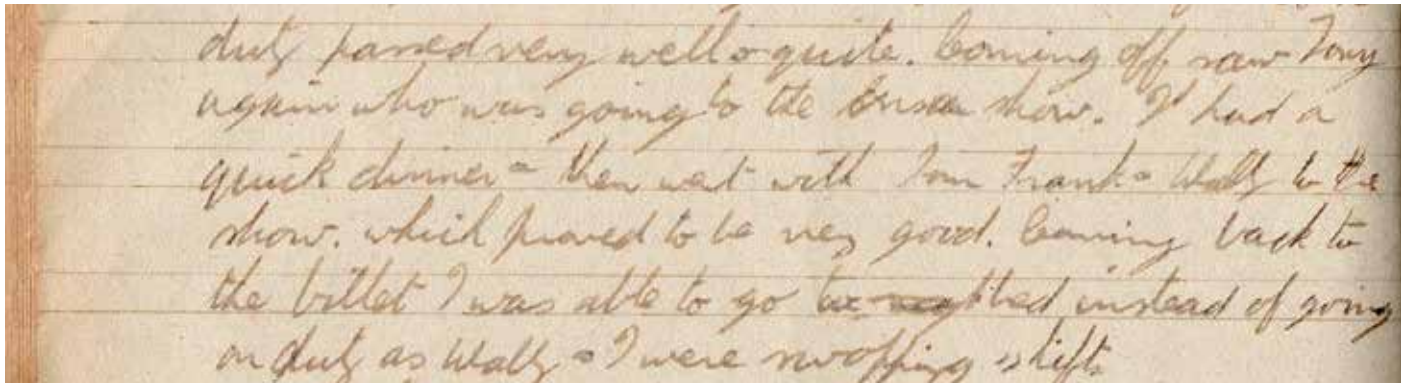 duty passed very well & quite. Coming off saw Tony
again who was going to the ensa show. I had a
quick dinner & then wet with Tom Frank & Wally to the
show. which proved to be very good. Coming back to
the billet I was able to go to bed instead of going
on duty as Wally & I were swopping shift.